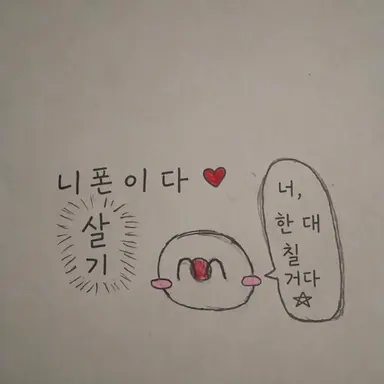 니폰이다
살
기
너,
한 대
칠
거다